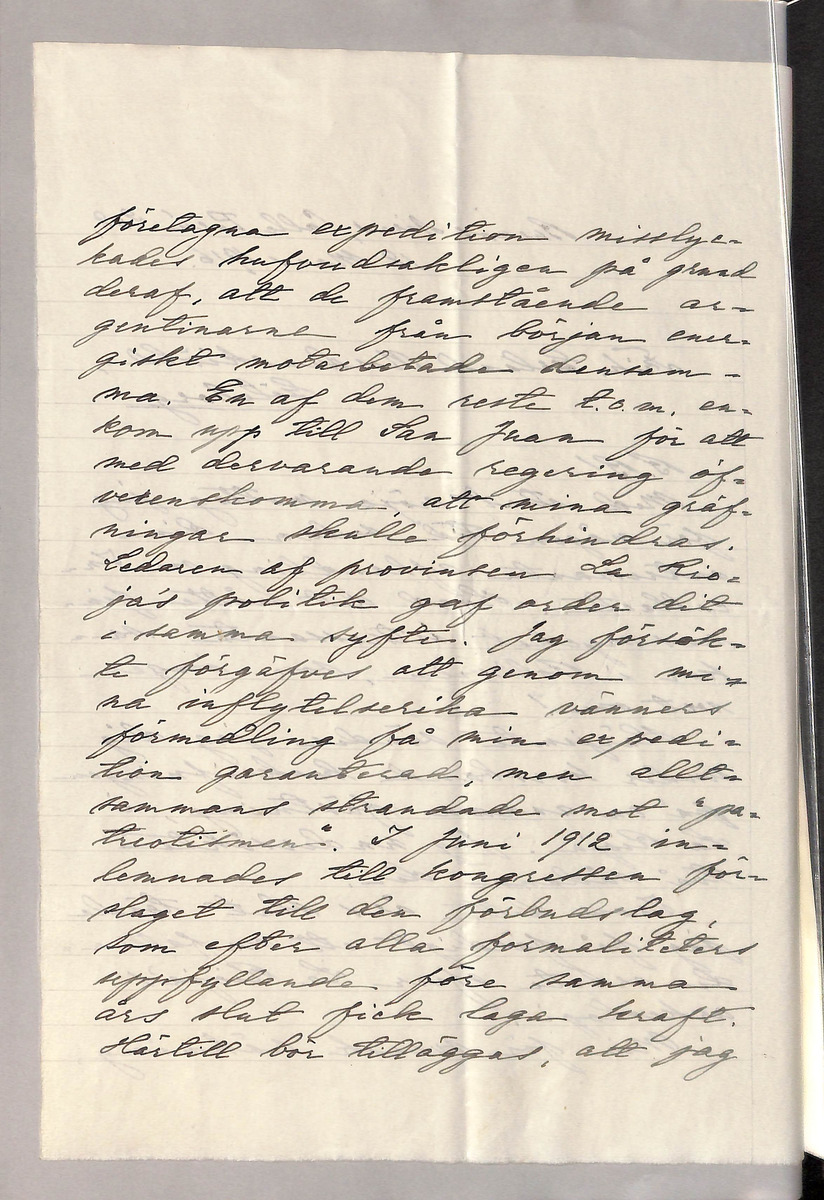 företagna expedition misslyc-
kades hufvudsakligen på grund
deraf, att de framstående ar-
gentinarne från början ener-
giskt motarbetade densam-
ma. En af dem reste t.o.m. en-
kom upp till San Juan för att
med dervarande regering öf-
verenskomma, att mina gräf-
ningar skulle förhindras.
Ledaren af provinsen La Rio-
ja's politik gaf order dit
i samma syfte. Jag försök-
te förgäfves att genom mi-
na inflytelserika vänners
förmedling få min expedi-
tion garanterad, men allt-
sammans strandade mot "pa-
treotismen". I Juni 1912 in-
lemnades till kongressen för-
slaget till den förbudslag,
som efter alla formaliteters
uppfyllande före samma
års slut fick laga kraft.
Härtill bör tilläggas, att jag